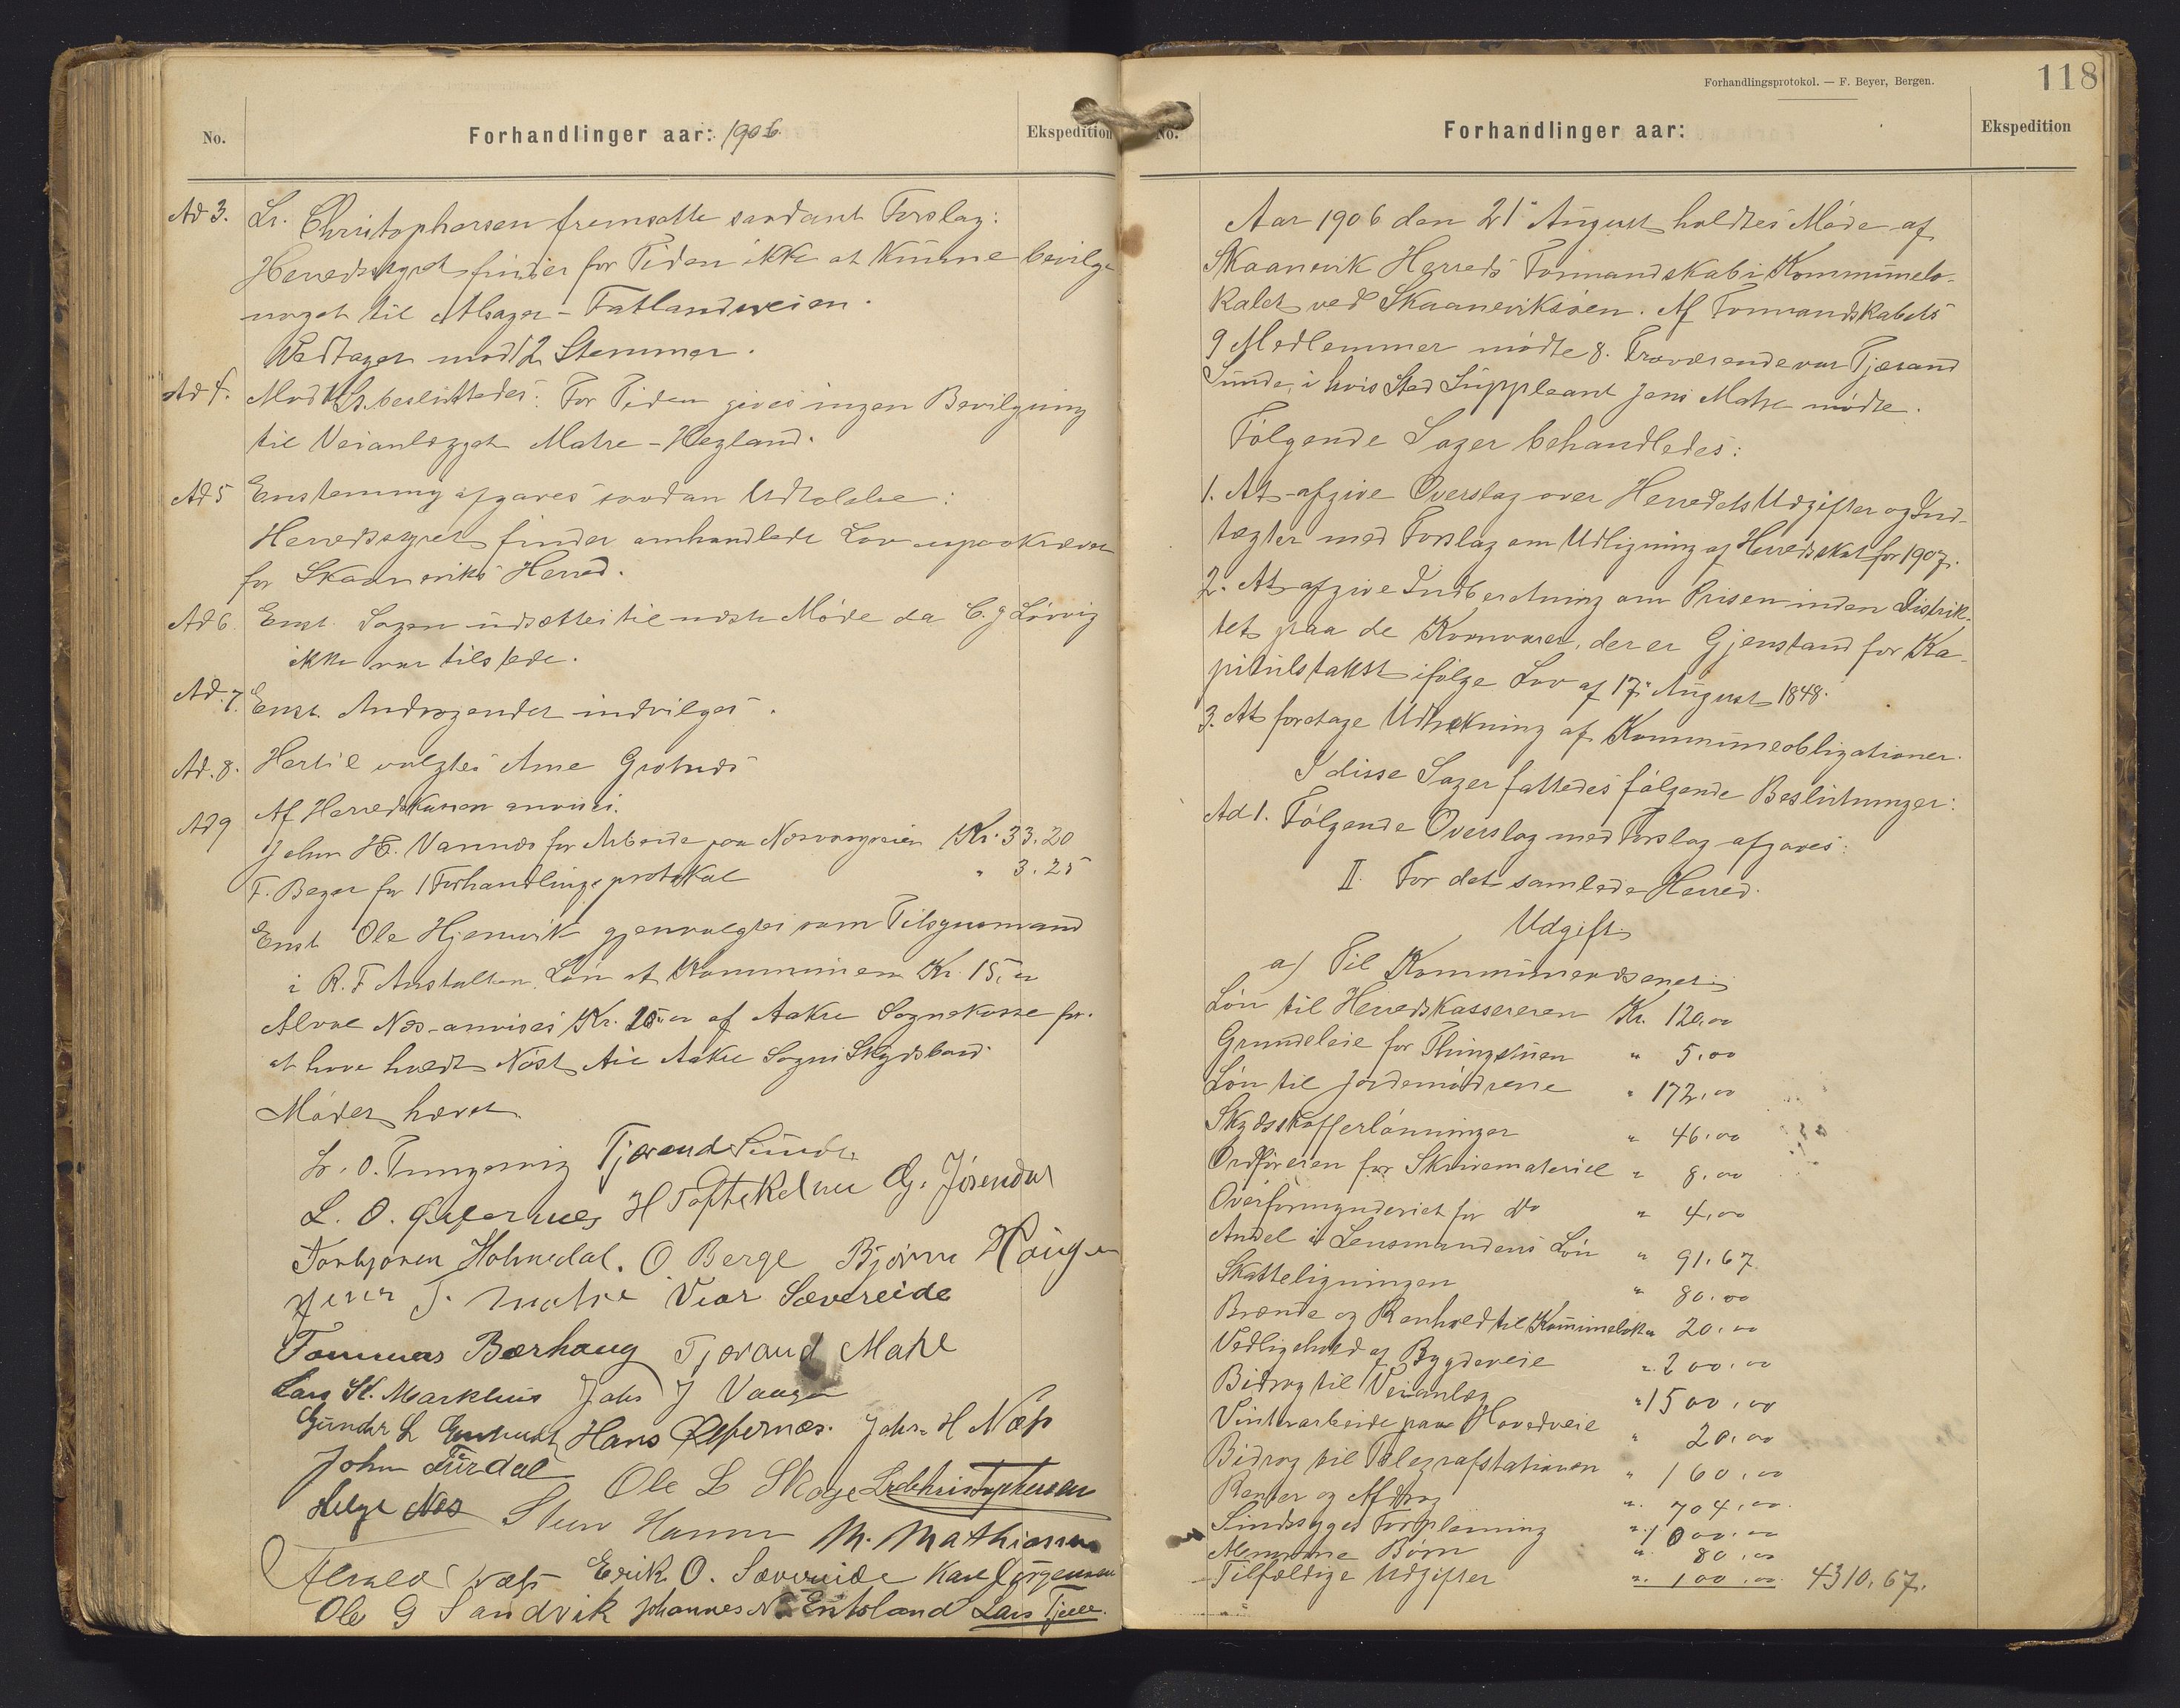 No.
Forhandlinger aar: 1906.
Ekspedition
Ad 3. Lr. Christophersen fremsatte saadant Forslag:
Herredsstyret finder for Tiden ikke at kunne bevilge
noget til Alsager-Fatlandsveien.
Vedtaget mod 12 Stemmer.
Ad 4. Mod 1 St. besluttedes: For Tiden gives ingen Bevilgning
til Veianlægget Matre-Hegland.
Ad 5 Enstemmig afgaves saadan Udtalelse:
Herredsstyret finder omhandlede Lov upaakrævet
for Skaaneviks Herred.
Ad 6 Enst. Sagen udsættes til næste Møde da C. J Lørvig
ikke var tilstede.
Ad. 7. Enst. Andragendet indvilges.
Ad. 8. Hertil valgtes Arne
Ad 9 Af Herredskassen anvises.
John H. Vannes for Arbeide paa Kr. 33.20
F. Beyer for 1 Forhandlingsprotokol " 3.25
Enst. Ole Hjemvik gjenvalgtes som Tilsynsmand
i R. F Anstalten. Løn af Kommunen Kr. 15,00
Alvae Næs anvises Kr. 15.00 af Aakre Sognekasse for
at have holdt Nøst til Aakre Sogns Skydsbaad
Mødet hævet.
Lr. O. Tungesvig Tjerand Sunde
L. O. H Toftekalven G. Jøsendal
Torbjøren Holmedal. O Berge Bjørn Haugen
Jens J. Matre Vear Sævereide
Tommas Bærhaug Tjerand Matre
Lars St. Markhus Johs J Vaage
Gunder L Hans Øefernæs. Johs. H Næss
John Furdal Ole L Skage Lr Christophersen
Helge Nes Steen Hamre M. Mathiassen
Næss Erik O. Sævereide Karl Jørgensen
Ole G Sandvik Johannes N. Entsland Lars Tjelle.
Forhandlingsprotokol. — F. Beyer, Bergen.
118
No.
Forhandlinger aar:
Ekspedition
Aar 1906 den 21" August holdtes Møde af
Skaanevik Herreds Formandskab i Kommunelo-
kalet ved Skaaneviksøen. Af Formandskabets
9 Medlemmer mødte 8. Fraværende var Tjerand
Sunde, i hvis Sted Suppleant Jens Matre mødte.
Følgende Sager behandledes:
1. At afgive Overslag over Herredets Udgifter og Ind-
tægter med Forslag om Udligning af Herredsskat for 1907.
2. At afgive Indberetning om Prisen inden Distrik-
tet paa de Kornvarer, der er Gjenstand for Ka-
pitulstakst ifølge Lov af 17" August 1848.
3. At foretage Udtrækning af Kommuneobligationer.
I disse Sager fattedes følgende Beslutninger:
Ad 1. Følgende Overslag med Forslag afgaves:
II. For det samlede Herred.
Udgift
a) Til Kommunevæsenet
Løn til Herredskassereren Kr. 120,00
Grundeleie for Thingstuen " 5,00
Løn til Jordemødrene " 172,00
Skydsskafferlønninger " 46,00
Ordføreren for Skrivemateriel " 8,00
Overformynderiet for do " 4,00
Andel i Lensmandens Løn " 91,67
Skatteligningen " 80,00
Brænde og Renhold til Kommunelok. " 20,00
Vedligehold af Bygdeveie " 200,00
Bidrag til Veianlæg " 1500,00
Vinterarbeide paa Hovedveie " 20,00
Bidrag til Telegrafstationen " 160,00
Renter og Afdrag " 704,00
Sindssyges Forpleining " 1000,00
Børn " 80,00
Tilfældige Udgifter " 100,00 4310,67.